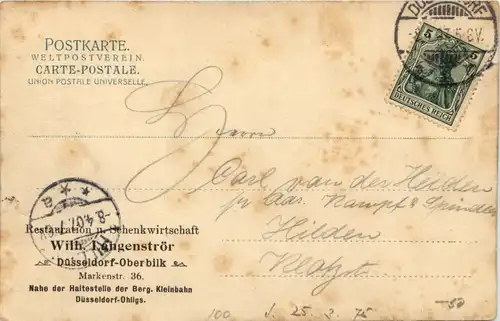 POSTKARTE.
WELTPOSTVEREIN.
CARTE-POSTALE.
UNION POSTALE UNIVERSELLE.
5 5
DEUTSCHES REICH
Herrn
Carl van der Hilden
Hilden
a
8.4.07.
Restauration u. Schenkwirtschaft
Wilh. Langenströr
Düsseldorf-Oberbilk
Markenstr. 36.
Nahe der Haltestelle der Berg. Kleinbahn
Düsseldorf-Ohligs.
100 25. 3. 75